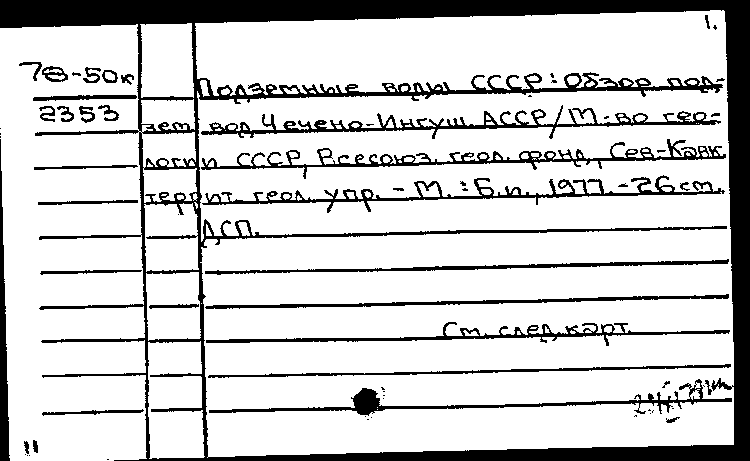 1.
78-50к
2353
Подземные воды СССР: Обзор под-
зем. вод Чечено-Ингуш. АССР/М-во гео-
логии СССР, Всесоюз. геол. фонд, Сев-Кавк.
террит. геол. упр. - М.: Б.и., 1977. - 26 см.
ДСП.
См. след. карт.
11